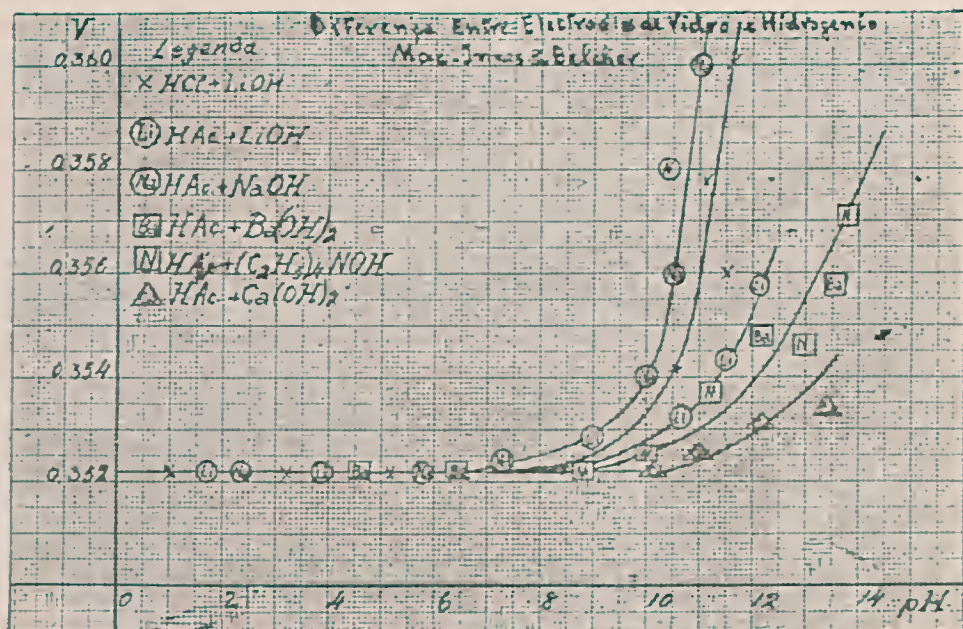 V
Diferença Entre Eletrodos de Vidro e Hidrogenio
Mac-Innes & Belcher
Legenda
× HCl + LiOH
Li HAc + LiOH
Na HAc + NaOH
Ba HAc + Ba(OH)2
N HAc + (C2H5)4NOH
HAc + Ca(OH)2
0,360
0,358
0,356
0,354
0,352
0 2 4 6 8 10 12 14 pH